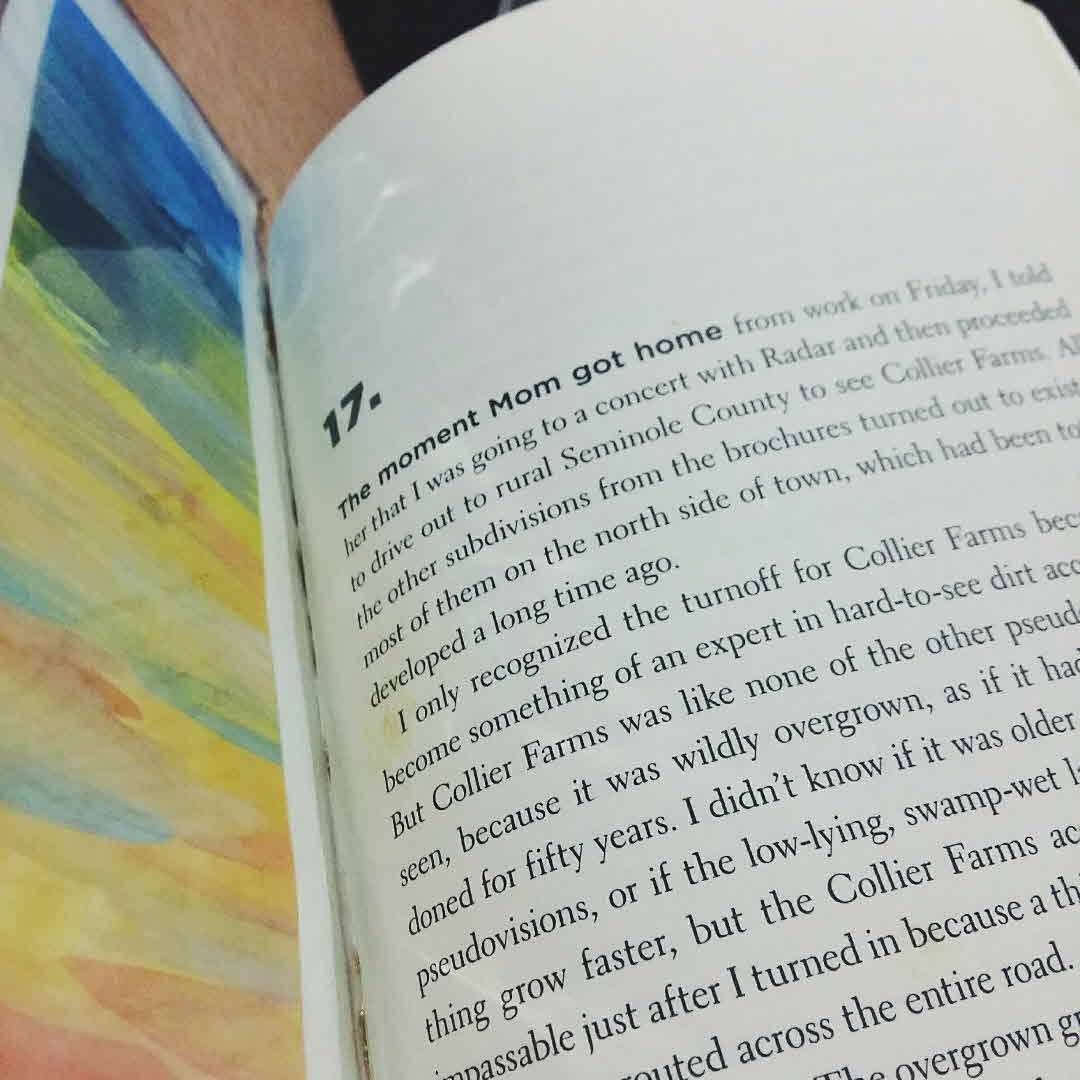 17.
The moment Mom got home from work on Friday, I told
her that I was going to a concert with Radar and then proceeded
to drive out to rural Seminole County to see Collier Farms. All
the other subdivisions from the brochures turned out to exist
most of them on the north side of town, which had been
developed a long time ago.
I only recognized the turnoff for Collier Farms
become something of an expert in hard-to-see dirt
But Collier Farms was like none of the other
seen, because it was wildly overgrown, as if it had
doned for fifty years. I didn't know if it was older
pseudovisions, or if the low-lying, swamp-wet
thing grow faster, but the Collier Farms
impassable just after I turned in because a
across the entire road.
The overgrown